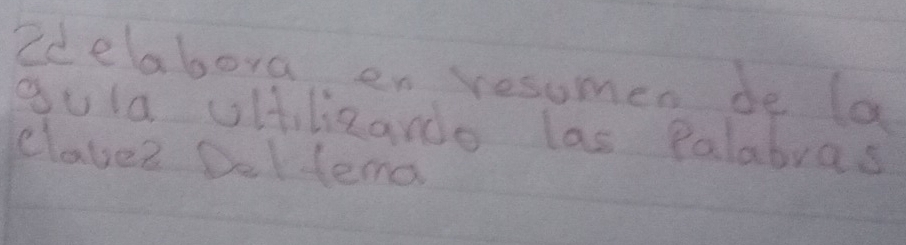 2d elabora en resumen de la
guia ultilizando las Palabras
clavez Del tema